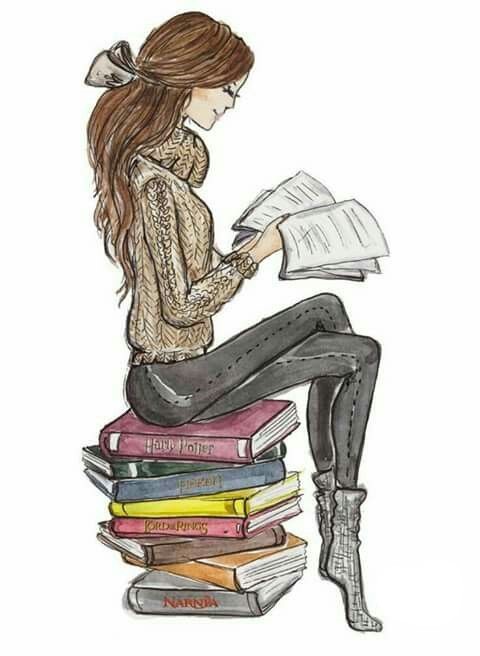 Harry Potter
LORD OF THE RINGS
NARNIA